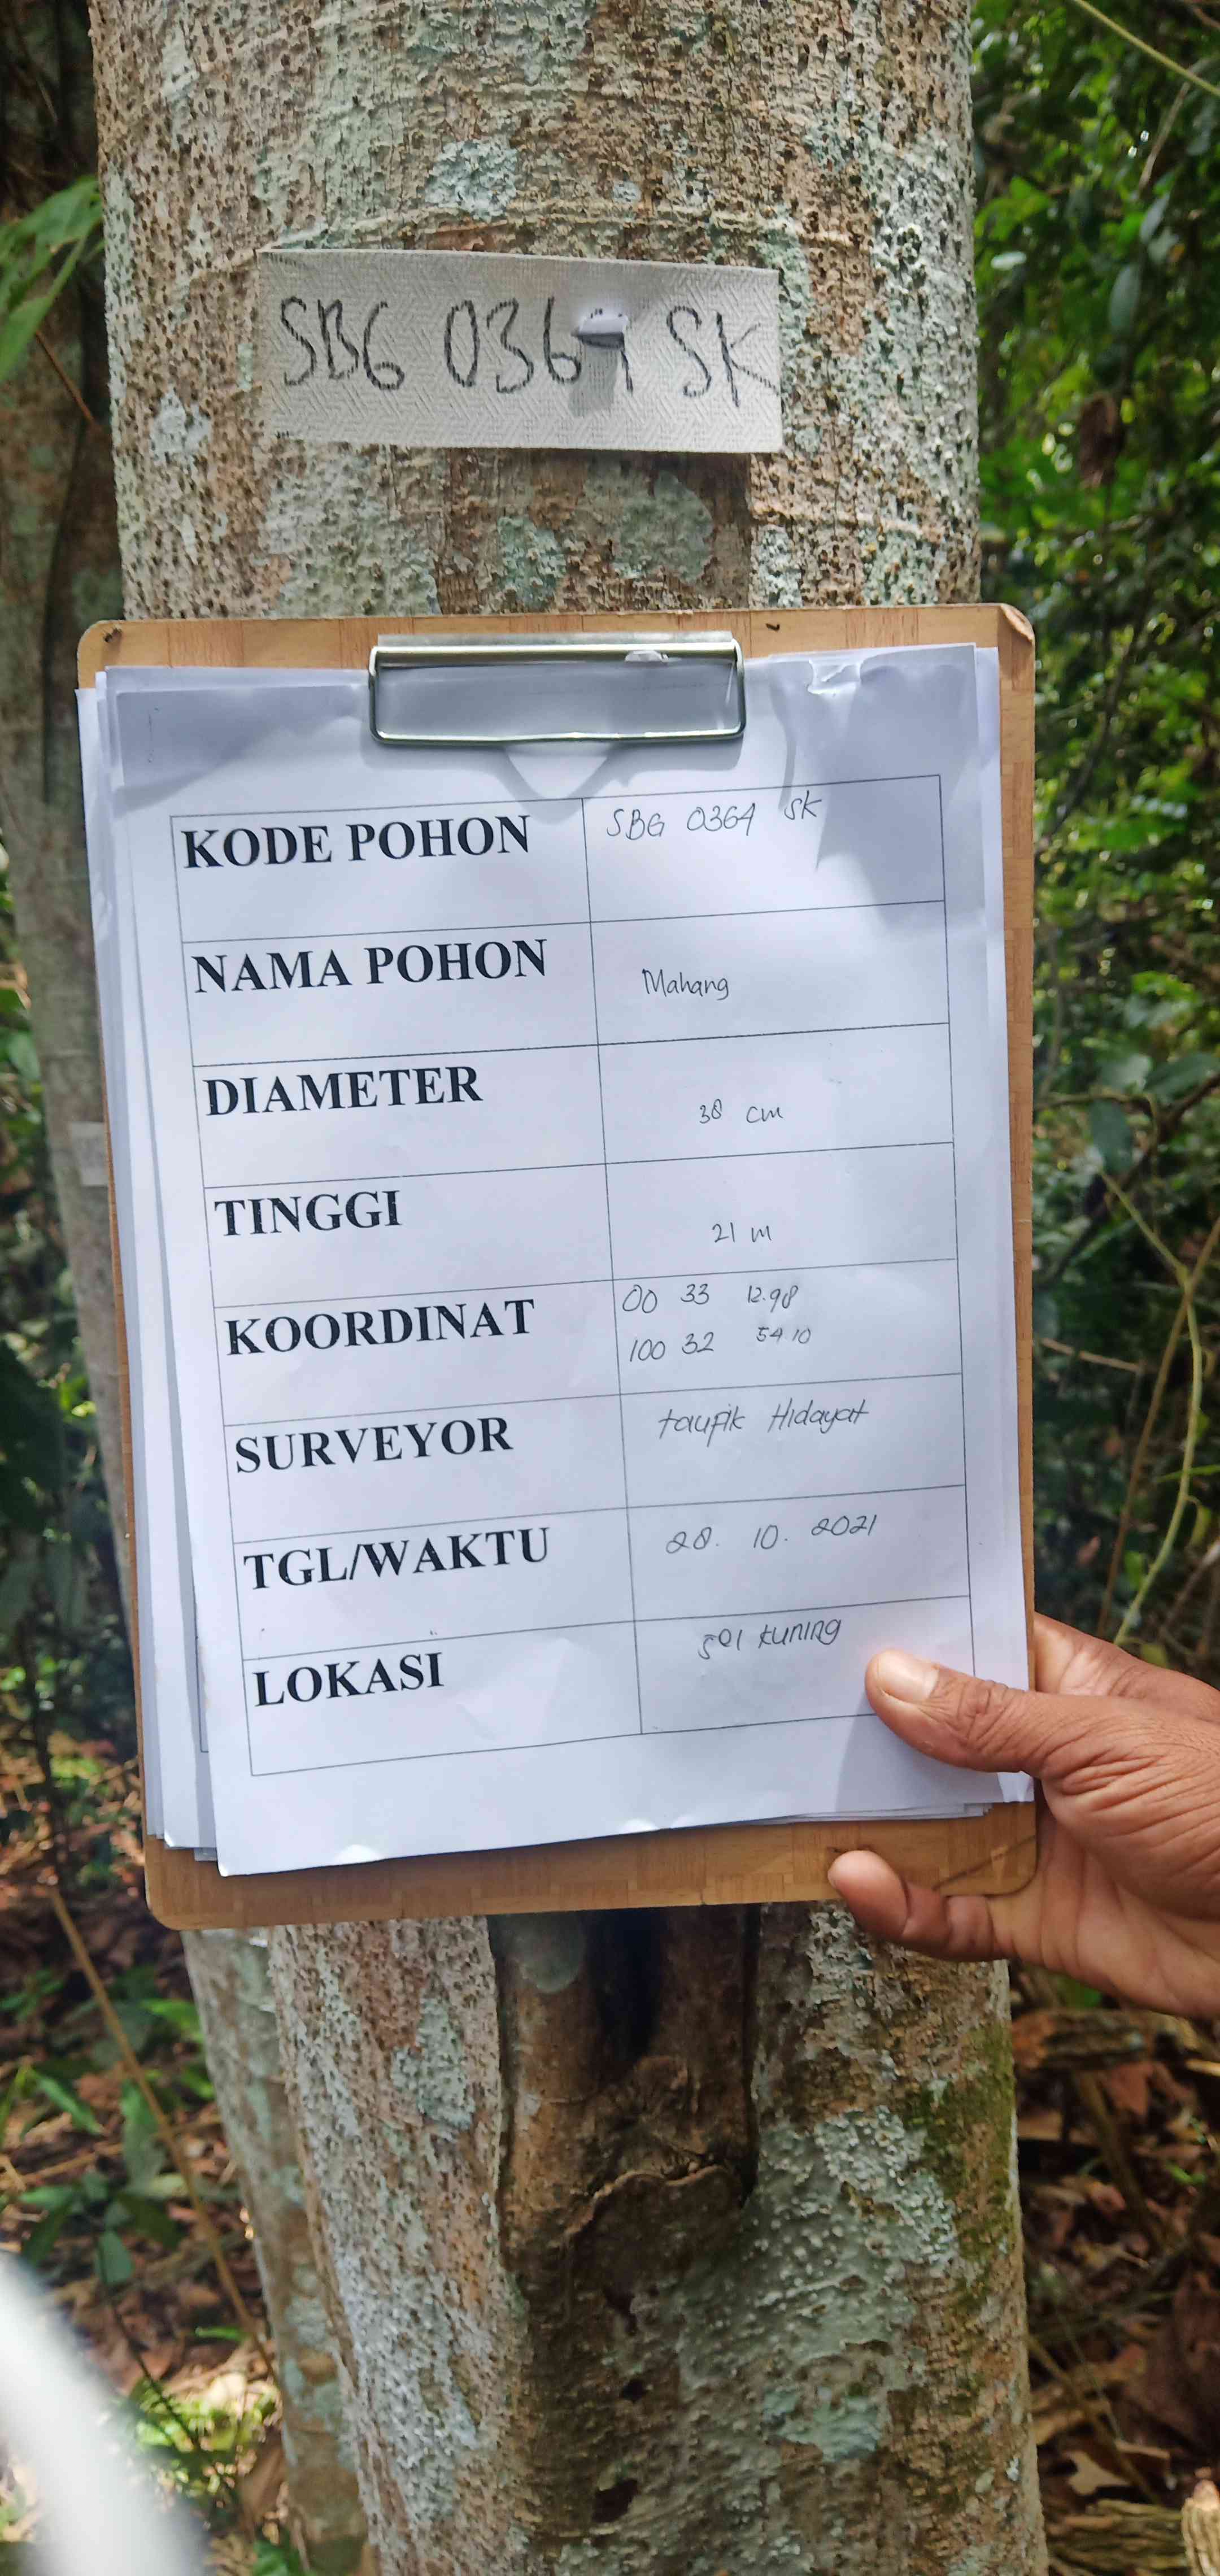 SBG 0364 SK
KODE POHON SBG 0364 SK
NAMA POHON Mahang
DIAMETER 38 cm
TINGGI 21 m
KOORDINAT 00 33 12.98
100 32 54.10
SURVEYOR taufik Hidayat
TGL/WAKTU 28. 10. 2021
LOKASI sei kuning